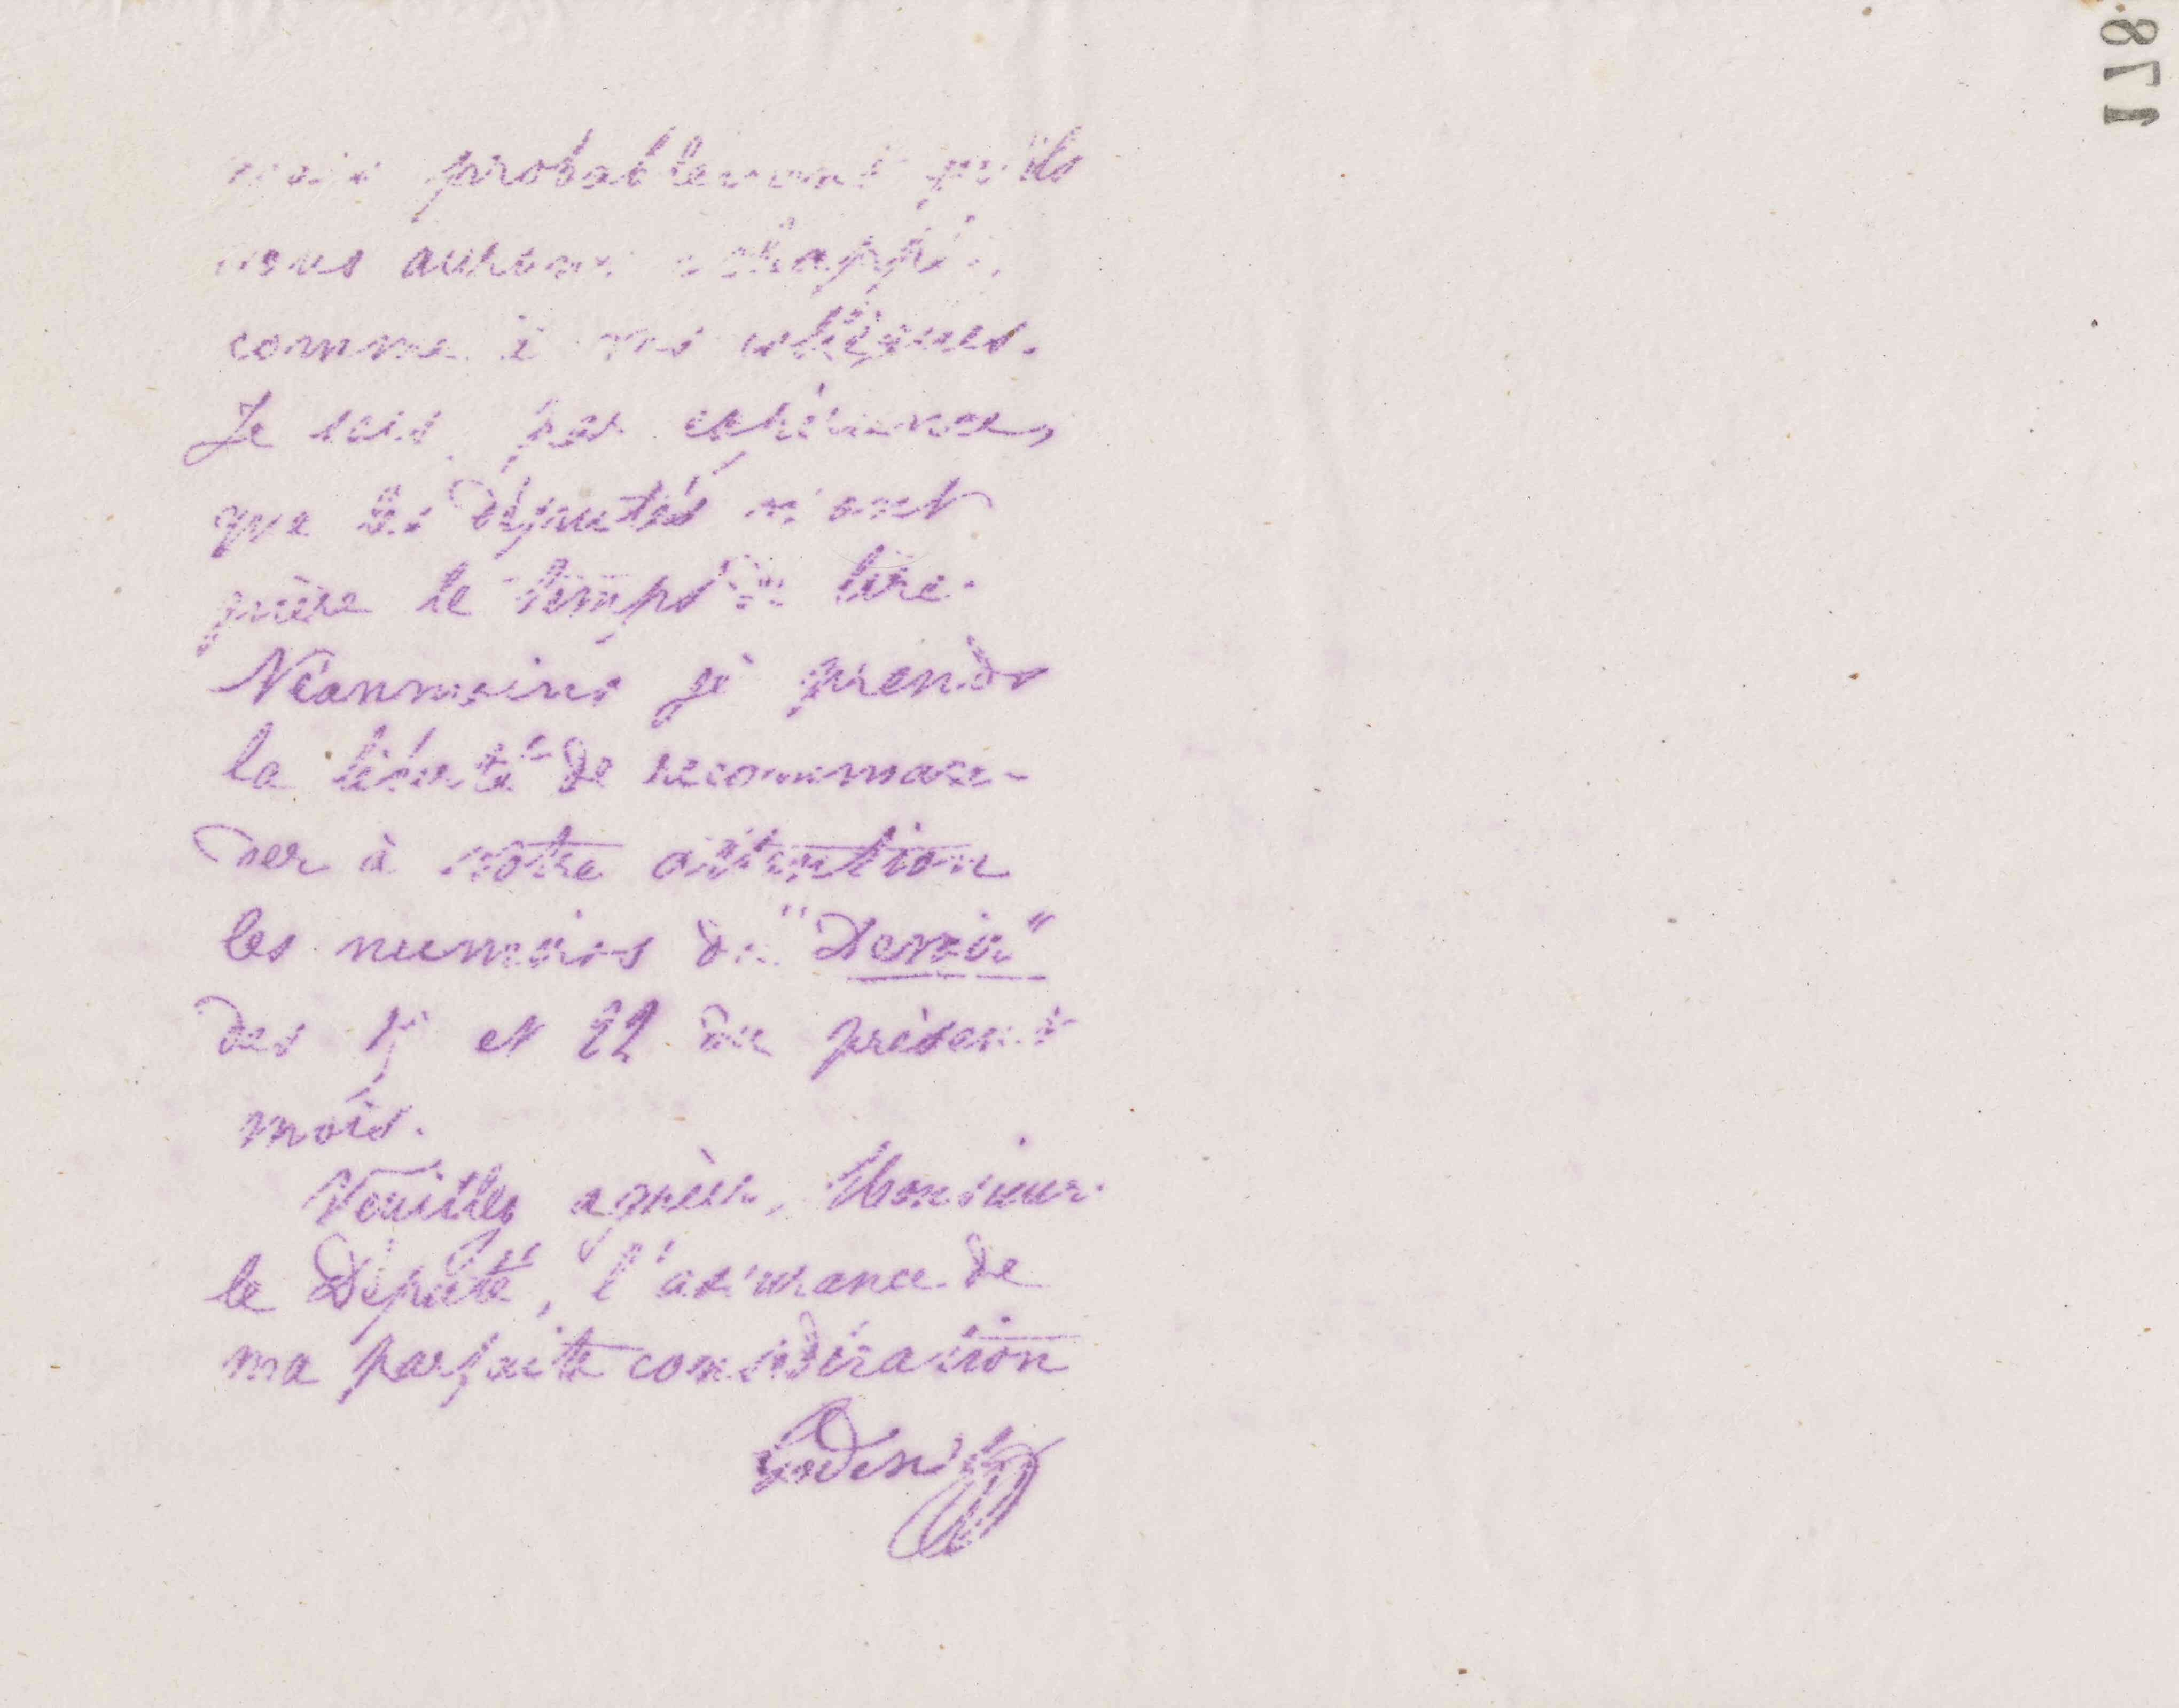 mais probablement qu'ils
vous auront échappé,
comme à vos collègues.
Je sais, par expérience,
que les députés n'ont
guère le temps de lire.
Néanmoins je prends
la liberté de recomman-
der à votre attention
les numéros du "Devoir"
des et 22 du présent
mois.
Veuillez agréer, Monsieur
le Député, l'assurance de
ma parfaite considération
Godin
178